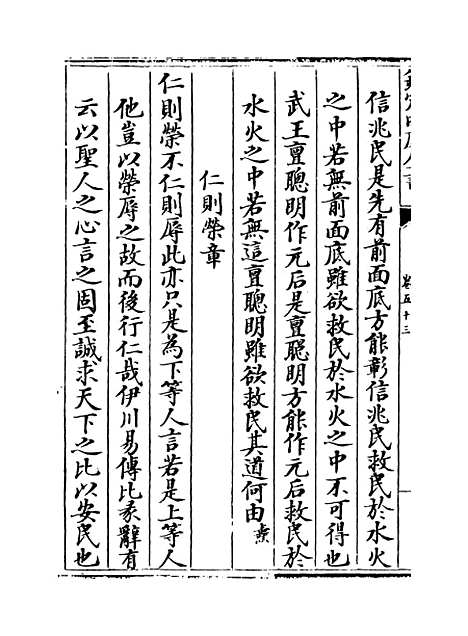 信兆民是先有前面底方能彰信兆民救民於水火
之中若無前面底雖欲救民於水火之中不可得也
武王亶聰明作元后是亶聰明方能作元后救民於
水火之中若無這亶聰明雖欲救民其道何由
仁則榮章
仁則榮不仁則辱此亦只是為下等人言若是上等人
他豈以榮辱之故而後行仁哉伊川易傳比彖辭有
云以聖人之心言之固至誠求天下之比以安民也
卷五十三